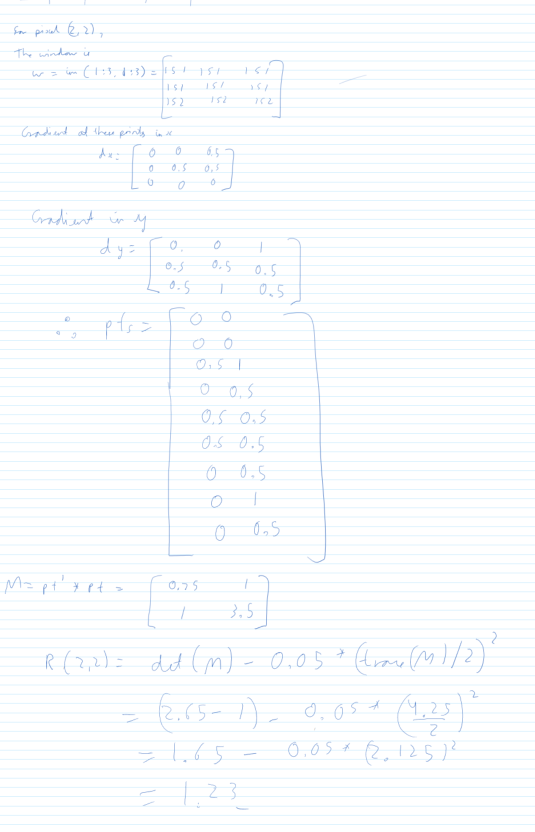 for pixel (2,2),
The window is
w = im (1:3, 1:3) = [ 151 151 151
151 151 151
152 152 152 ]
Gradient at these points in x
dx = [ 0 0 0.5
0 0.5 0.5
0 0 0 ]
Gradient in y
dy = [ 0. 0 1
0.5 0.5 0.5
0.5 1 0.5 ]
∴ pts = [ 0 0
0 0
0.5 1
0 0.5
0.5 0.5
0.5 0.5
0 0.5
0 1
0 0.5 ]
M = pt' * pt = [ 0.75 1
1 3.5 ]
R(2,2) = det(M) - 0.05 * (trace(M)/2)²
= (2.65 - 1) - 0.05 * (4.25/2)²
= 1.65 - 0.05 * (2.125)²
= 1.23